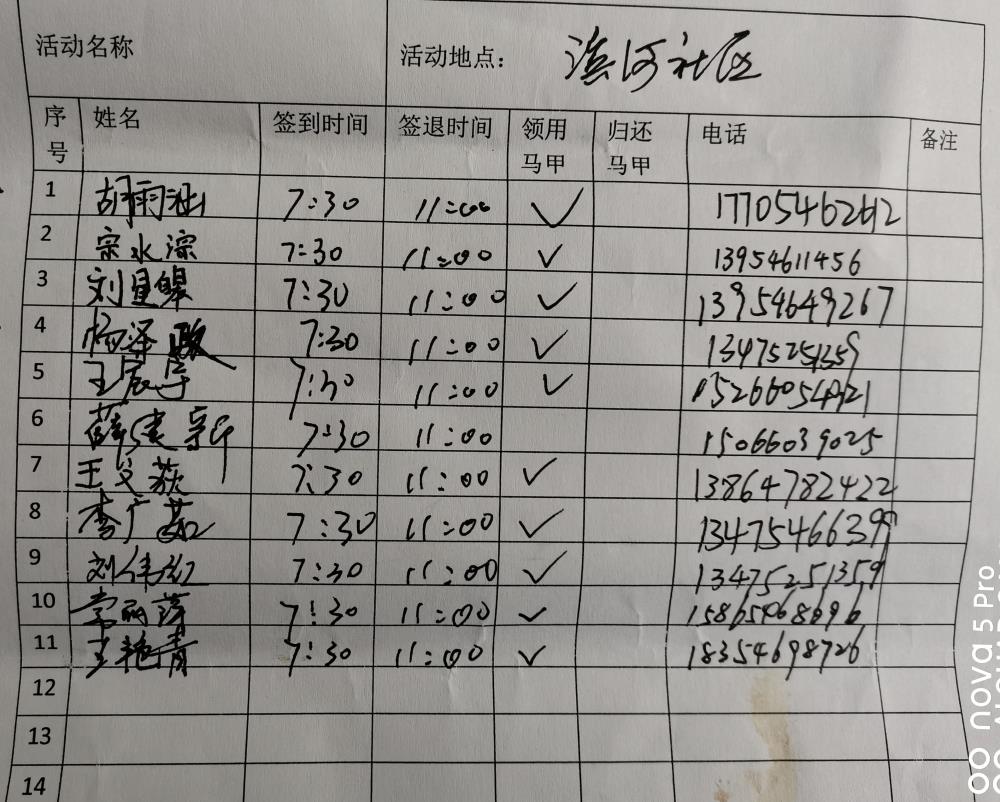 活动名称 活动地点: 滨河社区
序号 姓名 签到时间 签退时间 领用马甲 归还马甲 电话 备注
1 胡雨 7:30 11:00 ✓ 17705462612
2 宗水淙 7:30 11:00 ✓ 13954611456
3 刘 7:30 11:00 ✓ 13954649267
4 杨泽 7:30 11:00 ✓ 13475251359
5 王宸宇 7:30 11:00 ✓
6 薛建新 7:30 11:00 15066039025
7 王父荻 7:30 11:00 ✓ 13864782422
8 李广茹 7:30 11:00 ✓ 13475466399
9 刘伟红 7:30 11:00 ✓ 13475251359
10 丽萍 7:30 11:00 ✓ 15865468696
11 王艳青 7:30 11:00 ✓ 18354698726
12
13
14
nova 5 Pro